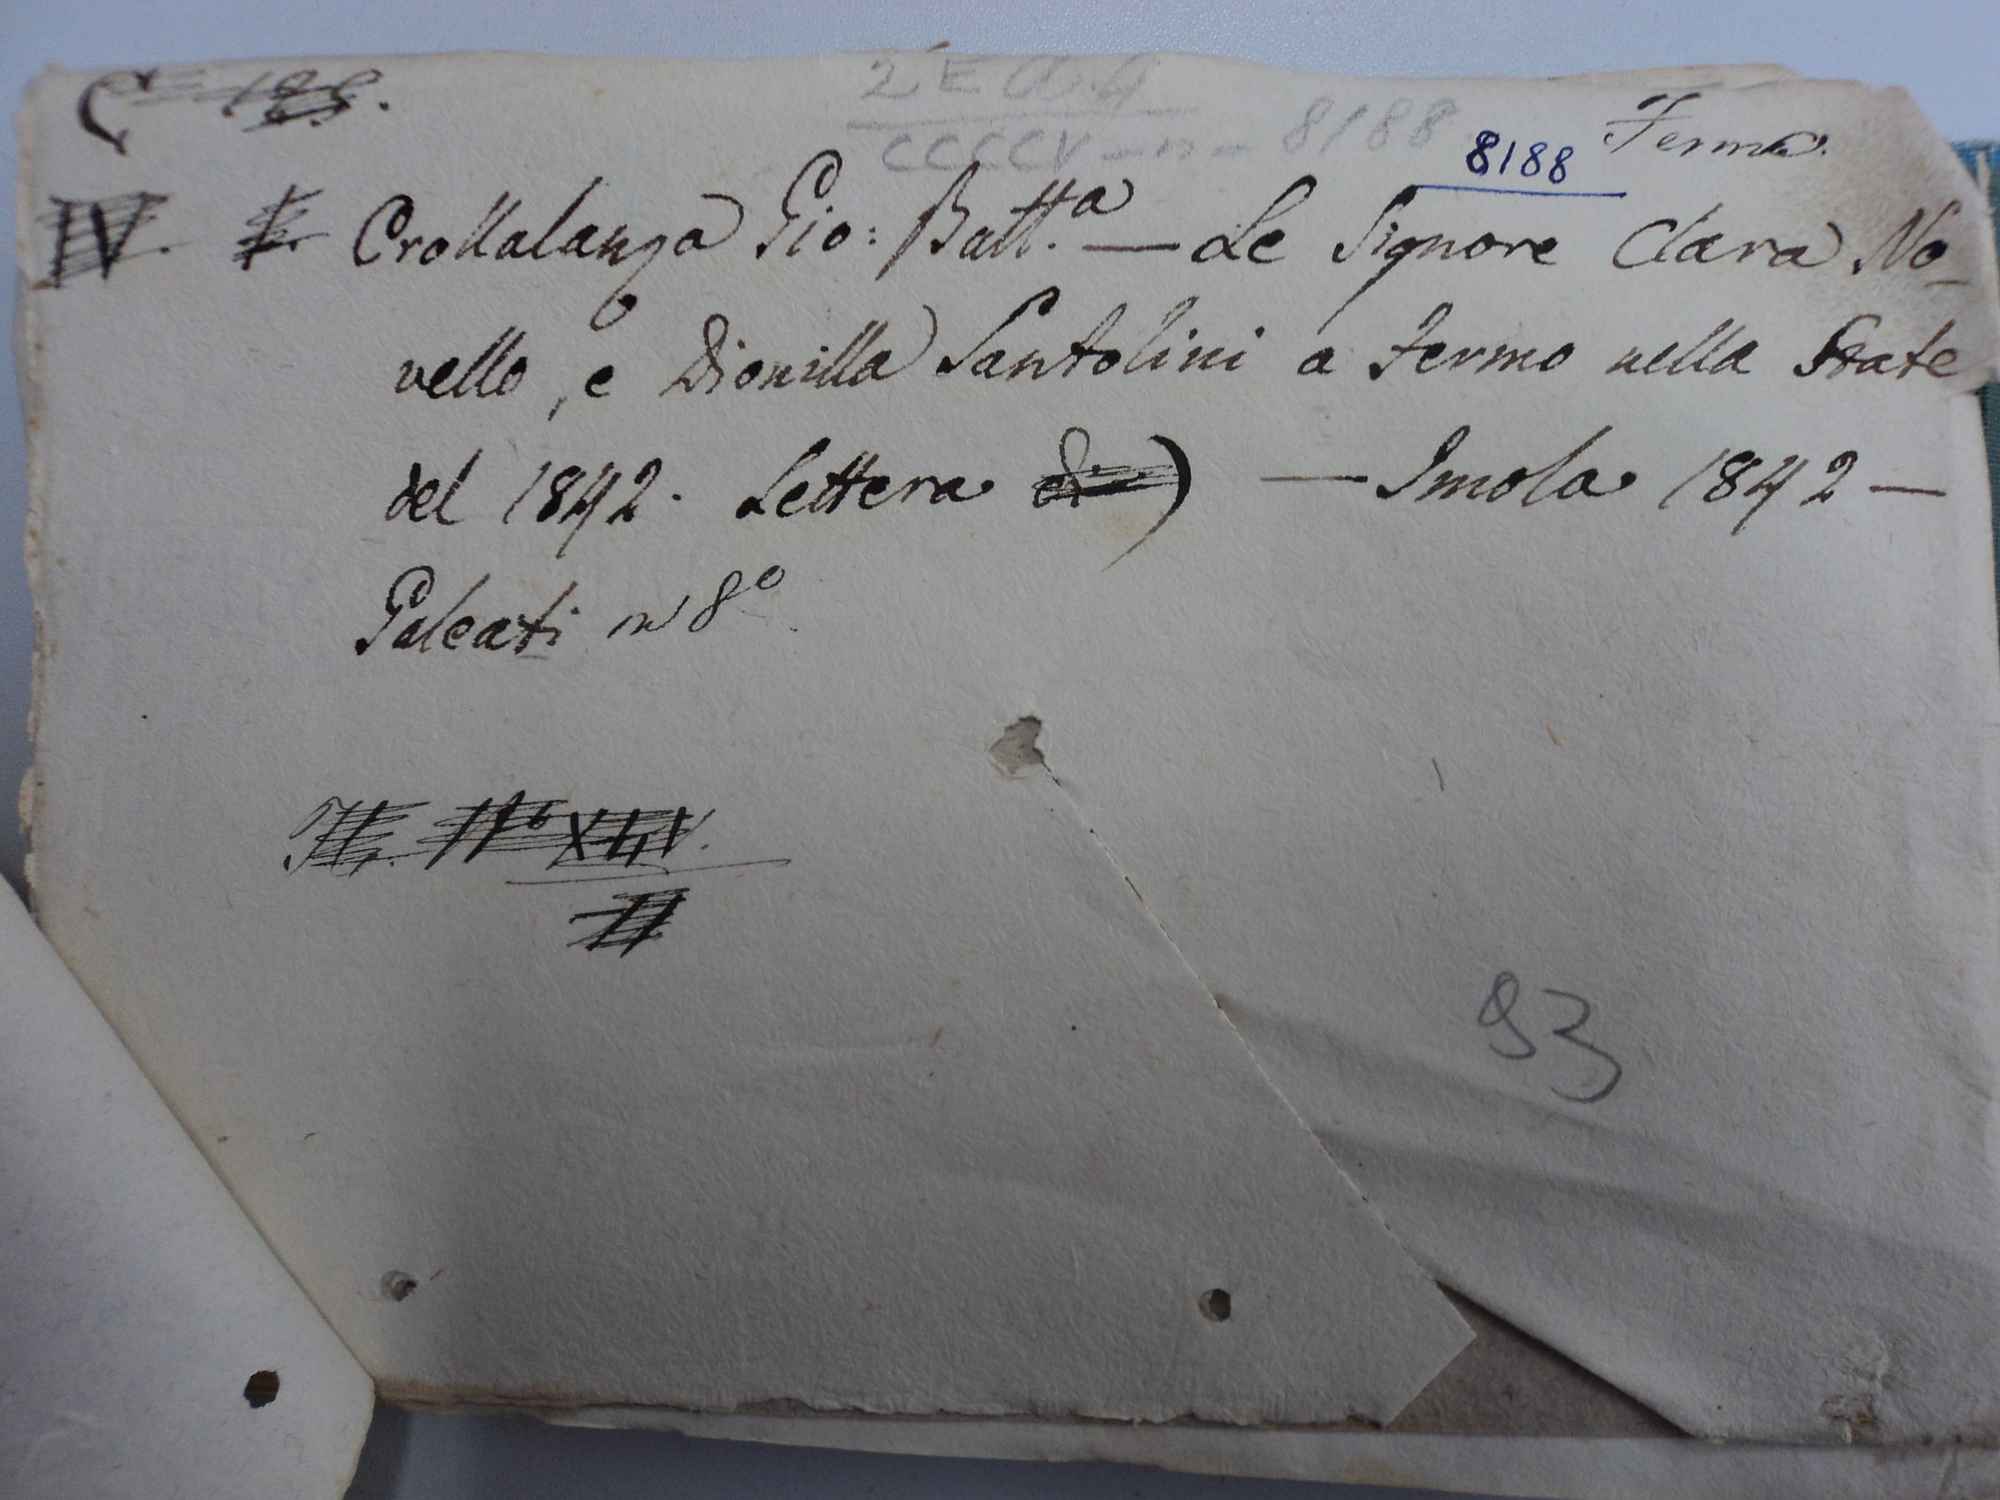 8188
CCCCV - n - 8188
Fermo.
IV. Crollalanza Gio: Batt.a — Le Signore Clara No-
vello, e Dionilla Santolini a Fermo nella State
del 1842. Lettera di) — Imola 1842 —
Galeati in 8°
XLIV.
II
93